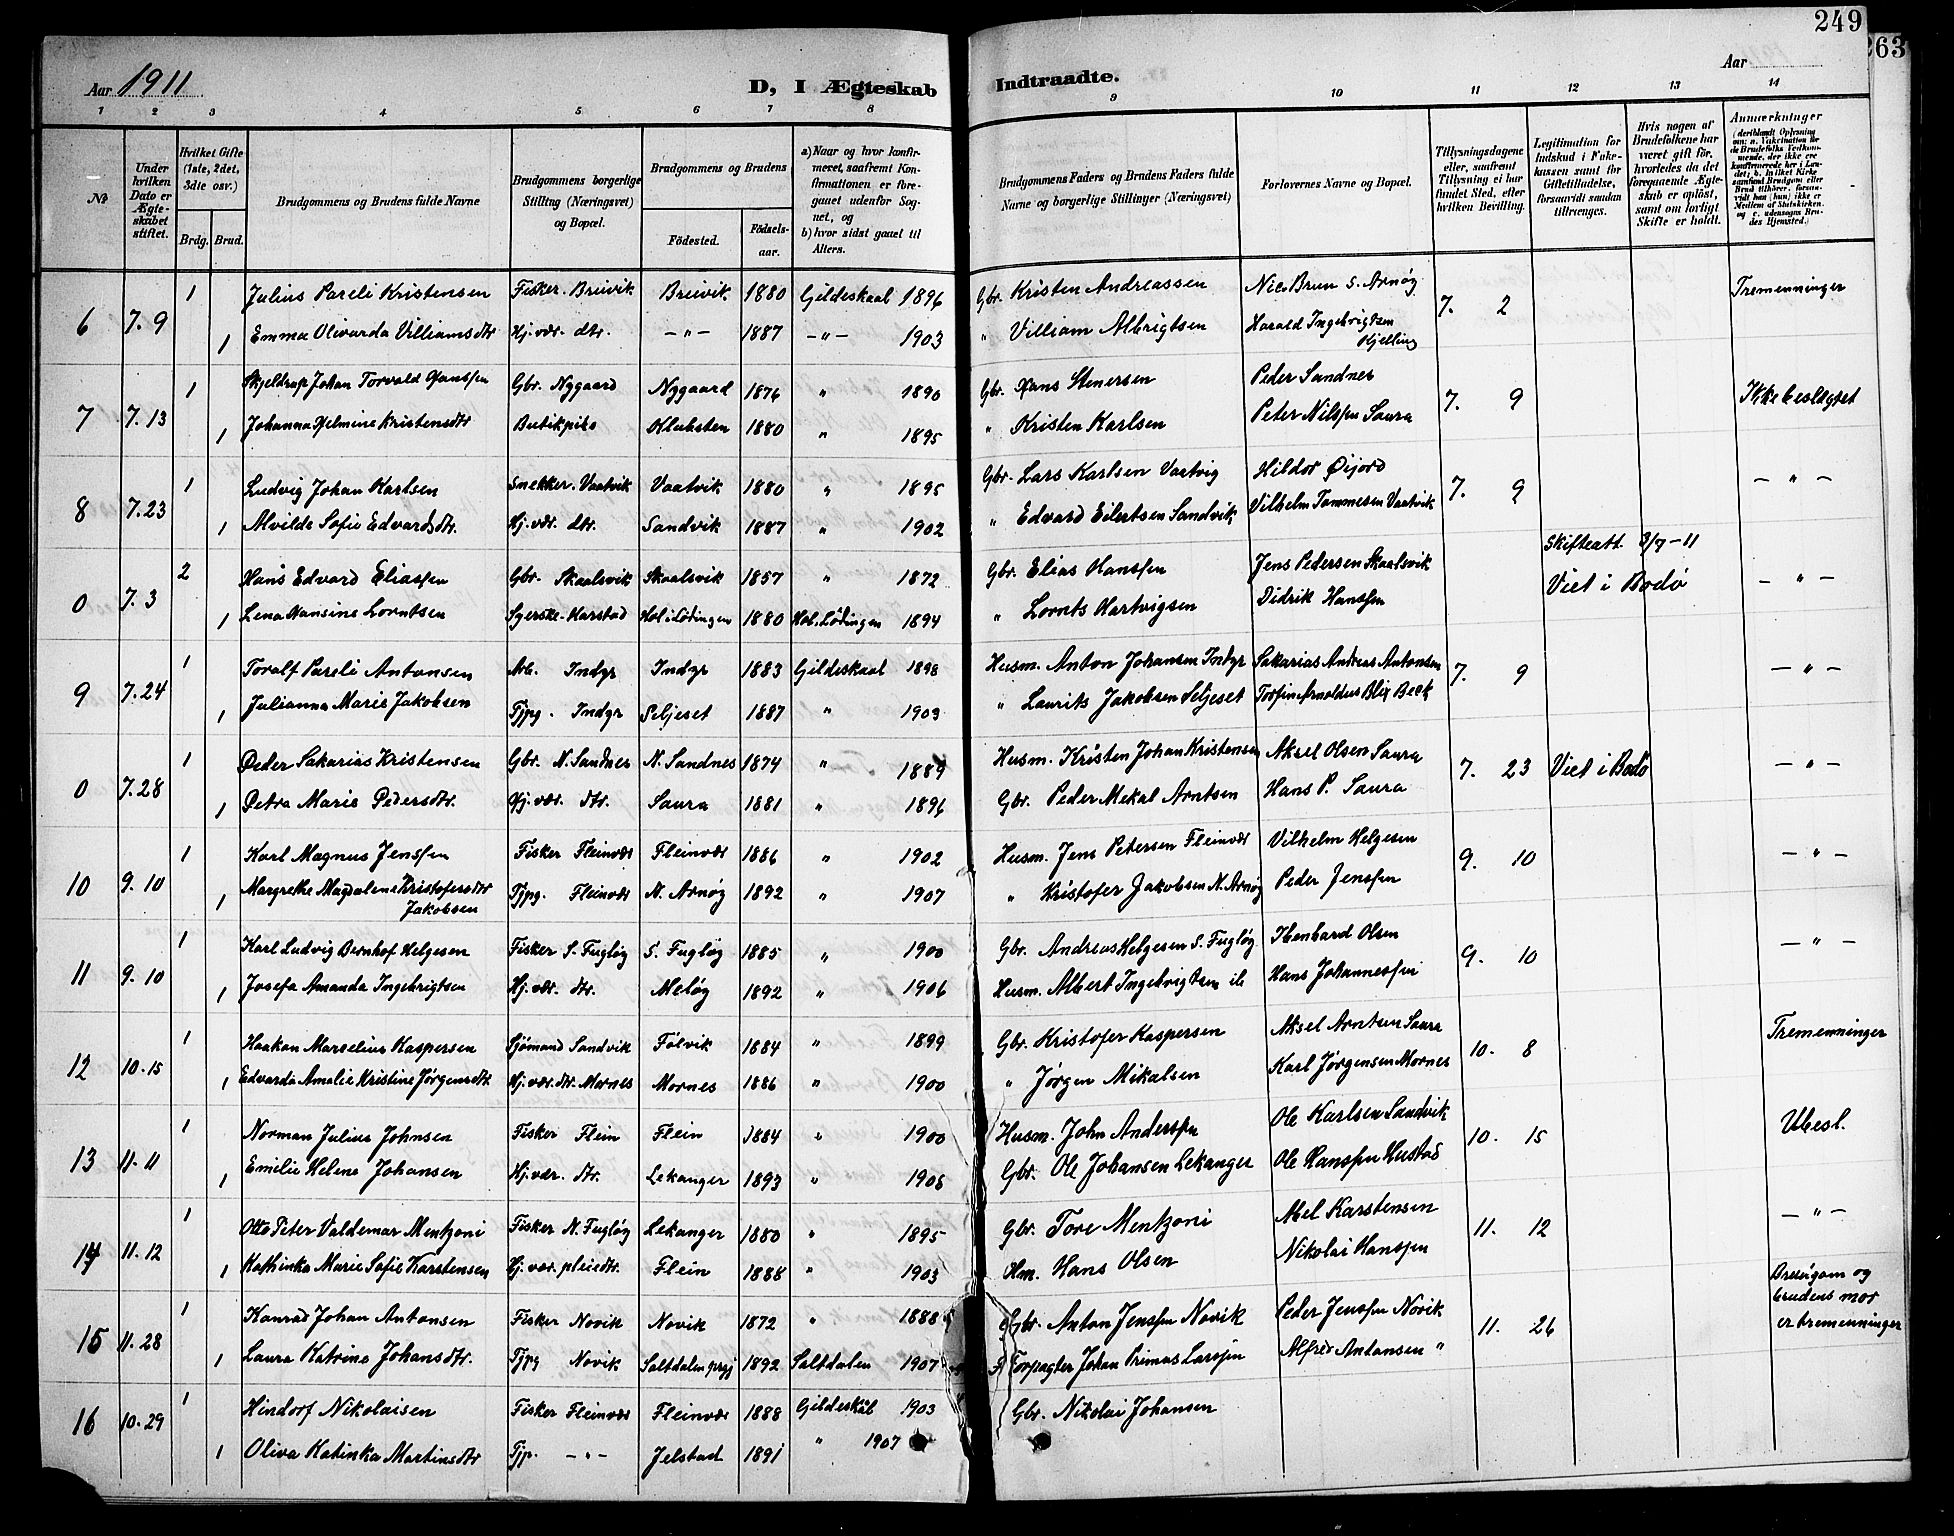 249
263
Aar 1911
D, I Ægteskab Indtraadte.
Aar
1 2 3 4 5 6 7 8 9 10 11 12 13 14
№
Under hvilken Dato er Ægteskabet stiftet.
Hvilket Gifte (1ste, 2det, 3die osv.)
Brdg. Brud.
Brudgommens og Brudens fulde Navne
Brudgommens borgerlige Stilling (Næringsvei) og Bopæl.
Brudgommens og Brudens
Födested.
Födsels-aar.
a) Naar og hvor konfirmeret, saafremt Konfirmationen er foregaaet udenfor Sognet, og
b) hvor sidst gaaet til Alters.
Brudgommens Faders og Brudens Faders fulde Navne og borgerlige Stillinger (Næringsvei)
Forlovernes Navne og Bopæl.
Tillysningsdagene eller, saafremt Tillysning ei har fundet Sted, efter hvilken Bevilling.
Legitimation for Indskud i Enkekassen samt for Giftetilladelse, forsaavidt saadan tiltrænges.
Hvis nogen af Brudefolkene har været gift för, hvorledes da det foregaaende Ægteskab er oplöst, samt om lovligt Skifte er holdt.
Anmærkninger
6 7.9 1 Julius Pareli Kristensen Fisker. Breivik Breivik 1880 Gildeskaal 1896 Gbr. Kristen Andreassen Nic. Brun S. Arnøy 7. 2 Tremenninger
1 Emma Olivarda Villiamsdtr Hj. vær. dtr. -"- 1887 -"- 1903 " Villiam Albrigtsen Harald Ingebrigtsen Kjelling
7 7.13 1 Skjeldrup Johan Torvald Hanssen Gbr. Nygaard Nygaard 1876 " 1890 Gbr. Hans Stenersen Peder Sandnes 7. 9 Ikke beslegtet
1 Johanna Helmine Kristensdtr Butikpike 1880 " 1895 " Kristen Karlsen Peter Nilssen Saura
8 7.23 1 Ludvig Johan Karlsen Snekker. Vaatvik Vaatvik 1880 " 1895 Gbr. Lars Karlsen Vaatvig Hildor Øijord 7. 9 - " -
1 Alvilde Sofie Edvardsdtr. Hj. vær. dtr. Sandvik 1887 " 1902 " Edvard Eilertsen Sandvik Vilhelm Tommesen Vaatvik
0 7.3 2 Hans Edvard Eliassen Gbr. Skaalsvik Skaalsvik 1857 " 1872 Gbr. Elias Hanssen Jens Pedersen Skaalsvik Skifteatt. 3/7-11 Viet i Bodø - " -
1 Lena Hansine Lorntsen Syerske-Karstad Hol i Lødingen 1880 Hol. Lødingen 1894 " Lornts Hartvigsen Didrik Hanssen
9 7.24 1 Toralf Pareli Antonsen Arb. Indyr Indyr 1883 Gildeskaal 1898 Husm. Anton Johansen Indyr Sakarias Andreas Antonsen 7. 9 - " -
1 Julianna Marie Jakobsen Tjpg. Indyr Seljeset 1887 " 1903 " Laurits Jakobsen Seljeset Torfin Arnoldus Blix Beck
0 7.28 1 Peder Sakarias Kristensen Gbr. N. Sandnes N. Sandnes 1874 " 1889 Husm. Kristen Johan Kristensen Aksel Olsen Saura 7. 23 Viet i Bodø - " -
1 Petra Marie Pedersdtr. Hj. vær. dtr. Saura 1881 " 1896 Gbr. Peder Mekal Arntsen Hans P. Saura
10 9.10 1 Karl Magnus Jenssen Fisker Fleinvær Fleinvær 1886 " 1902 Husm. Jens Petersen Fleinvær Vilhelm Helgesen 9. 10 - " -
1 Margrethe Magdalene Kristofersdtr Jakobsen Tjpg. Fleinvær N. Arnøy 1892 " 1907 " Kristofer Jakobsen N. Arnøy Peder Jenssen
11 9.10 1 Karl Ludvig Bernhof Helgesen Fisker S. Fugløy S. Fugløy 1885 " 1900 Gbr. Andreas Helgesen S. Fugløy Olsen 9. 10 - " -
1 Josefa Amanda Ingebrigtsen Hj. vær. dtr. Meløy 1892 " 1906 Husm. Albert Ingebrigtsen Hans Johannessen
12 10.15 1 Haakan Marselius Kaspersen Sjømand Sandvik Følvik 1884 " 1899 Gbr. Kristofer Kaspersen Aksel Arntsen Saura 10. 8 Tremenninger
1 Edvarda Amalie Kristine Jørgensdtr. Hj. vær. dtr. Mornes Mornes 1886 " 1900 " Jørgen Mikalsen Karl Jørgensen Mornes
13 11.11 1 Norman Julius Johnsen Fisker Flein Flein 1884 " 1900 Husm. John Anderssen Ole Karlsen Sandvik 10. 15 Ubesl.
1 Emilie Helene Johansen Hj. vær. dtr. Lekanger 1893 " 1908 Gbr. Ole Johansen Lekanger Ole Hanssen Hustad
14 11.12 1 Otto Peter Valdemar Mentzoni Fisker N. Fugløy Lekanger 1880 " 1895 Gbr. Tore Mentzoni Aksel Karstensen 11. 12 - " -
1 Kathinka Marie Sofie Karstensen Hj. vær. pleiedtr. Flein 1888 " 1903 Hans Olsen Nikolai Hanssen
15 11.28 1 Konrad Johan Antonsen Fisker Novik Novik 1872 " 1888 Gbr. Anton Jenssen Novik Peder Jenssen Novik 11. 26 Brudgom og brudens mor er tremenninger
1 Laura Katrine Johansdtr. Tjpg Novik 1892 Saltdalen 1907 Forpagter Johan Primus Larssen Alfred Antonsen "
16 10.29 1 Hindorf Nikolaisen Fisker Fleinvær Fleinvær 1888 Gildeskål 1903 Gbr. Nikolai Johansen
1 Oliva Katinka Martinsdtr Tjp. -"- Jelstad 1891 " 1907